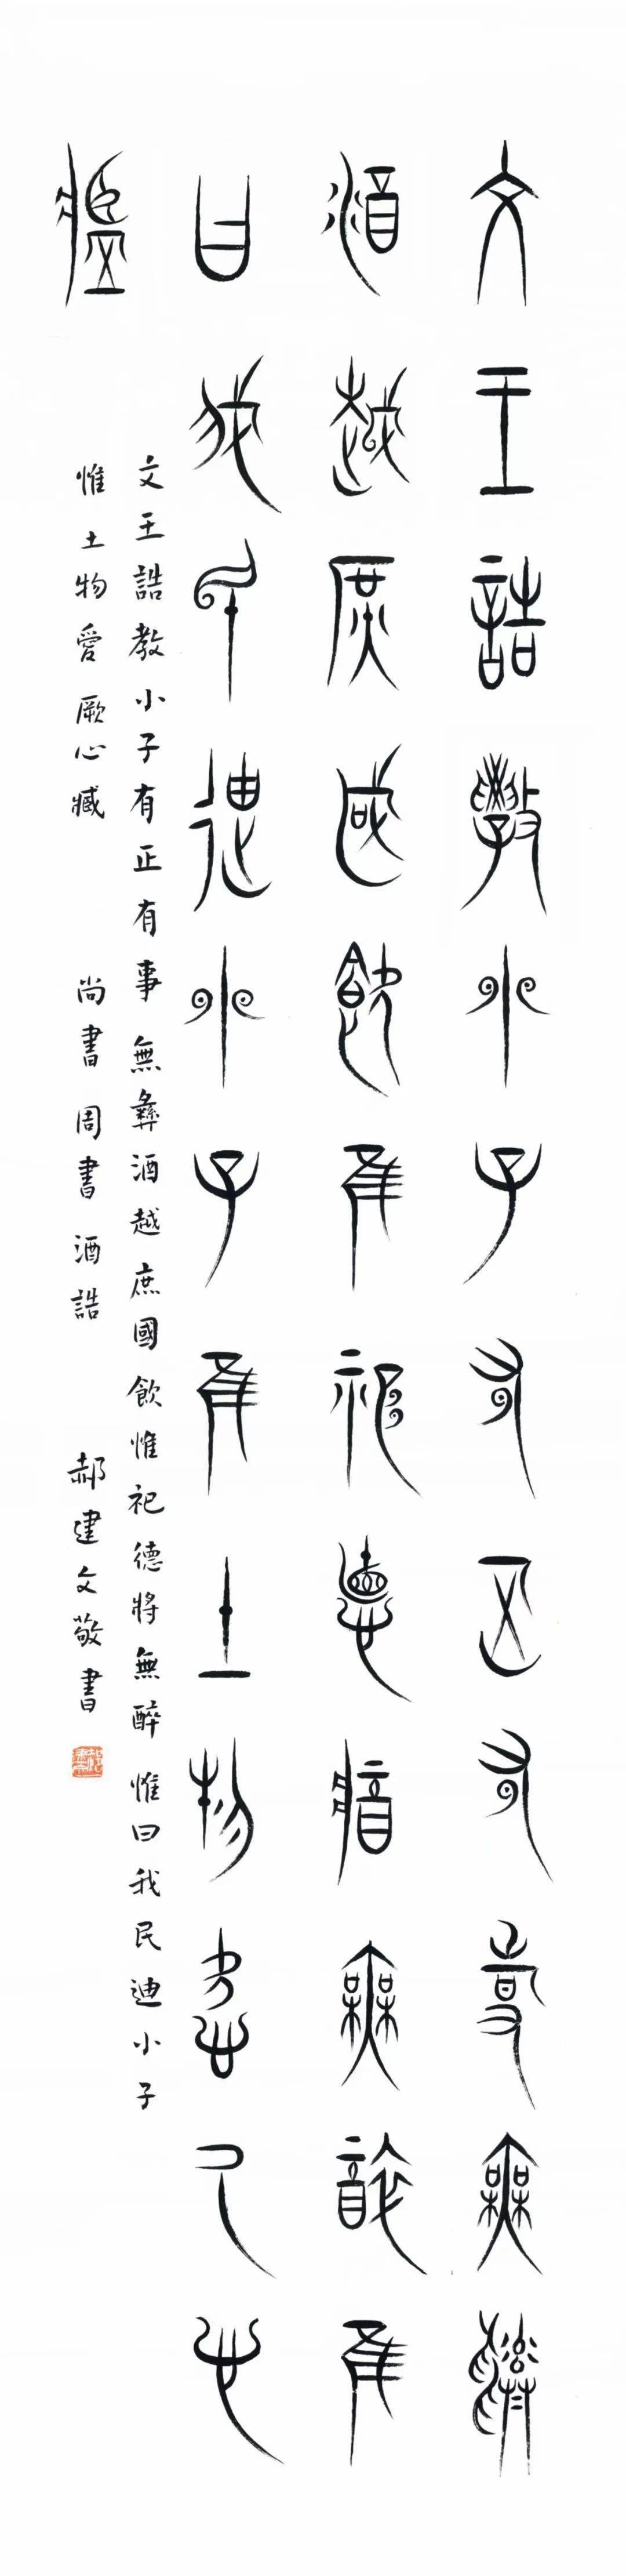 文王誥教小子有正有事無彝
酒越庶國飲惟祀德將無醉惟
曰我民迪小子惟土物愛厥心
臧
文王誥教小子有正有事無彝酒越庶國飲惟祀德將無醉惟曰我民迪小子
惟土物愛厥心臧 尚書周書酒誥 郝建文敬書